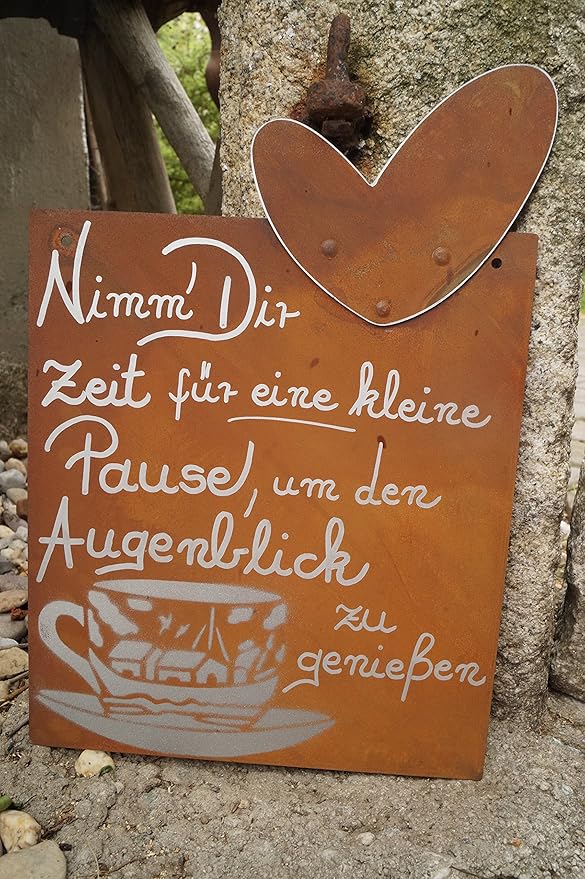 Nimm' Dir
Zeit für eine kleine
Pause, um den
Augenblick
zu
genießen